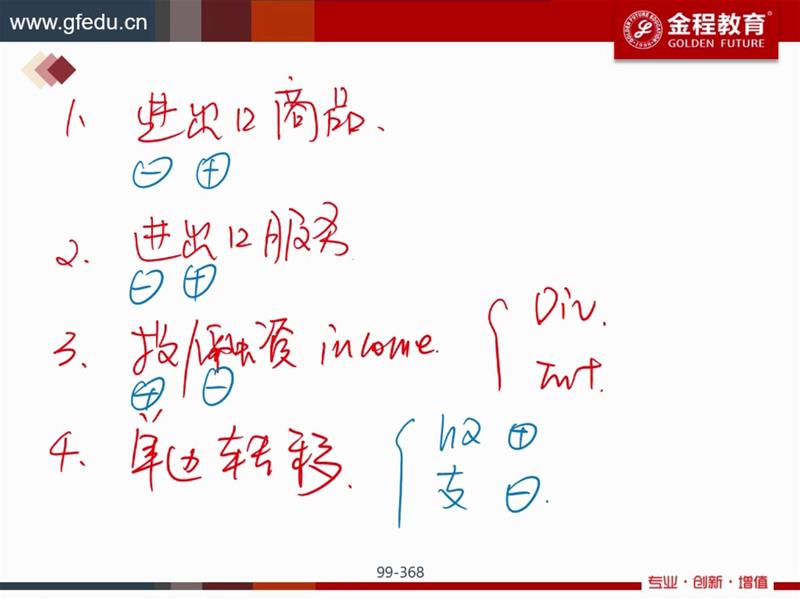 www.gfedu.cn
金程教育
GOLDEN FUTURE
1、进出口商品、
⊖ ⊕
2、进出口服务
⊖ ⊕
3、投/融资 income. { Div.
Int.
⊕ ⊖
4、单边转移. { 收 ⊕
支 ⊖.
99-368
专业·创新·增值